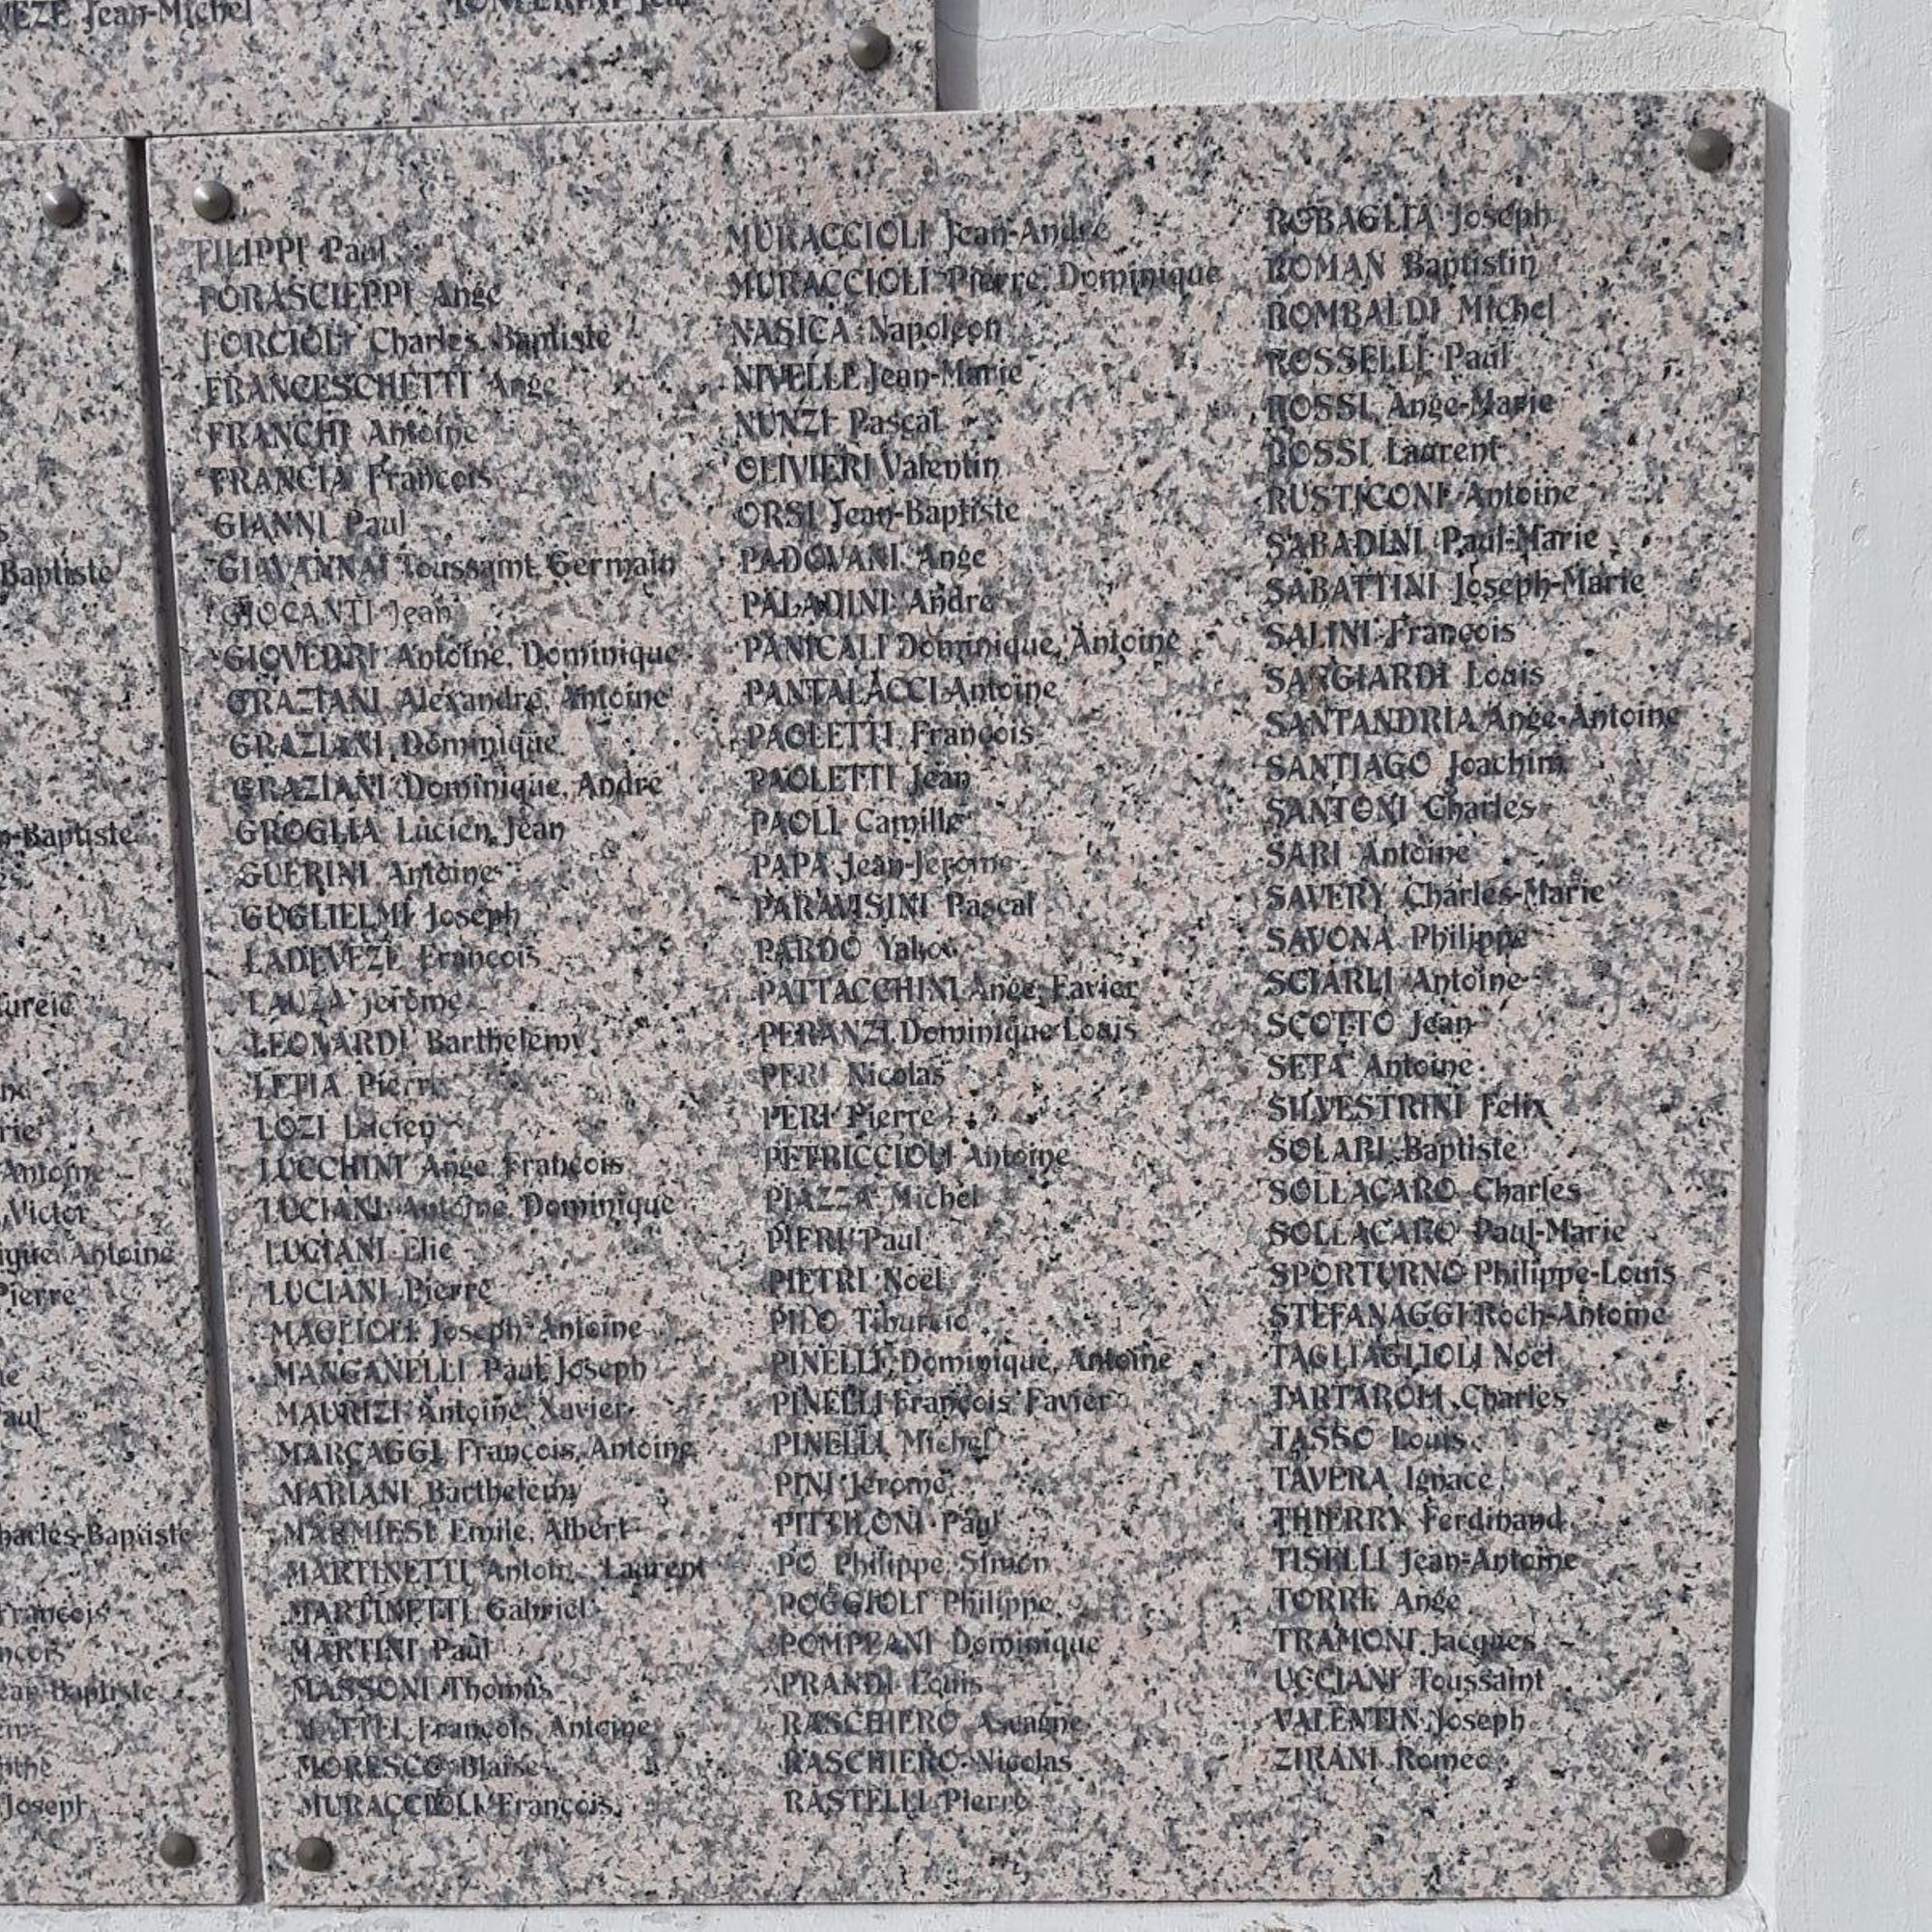 Jean-Michel
Baptiste
Baptiste
Antoine
Victor
Antoine
Pierre
Charles-Baptiste
François
Baptiste
Joseph
FILIPPI Paul
PORASCIEPPI Ange
FORCIOLI Charles, Baptiste
FRANCESCHETTI Ange
FRANCHI Antoine
FRANCIA François
GIANNI Paul
GIAVANNAI Toussaint, Germain
GIOCANTI Jean
GIOVEDRI Antoine, Dominique
GRAZIANI Alexandre, Antoine
GRAZIANI Dominique
GRAZIANI Dominique, André
GROGLIA Lucien, Jean
GUERINI Antoine
GUGLIELMI Joseph
LADEVEZE François
LAUZA Jérôme
LEONARDI Barthelemy
LETIA Pierre
LOZI Lucien
LUCCHINI Ange, François
LUCIANI Antoine, Dominique
LUCIANI Elie
LUCIANI Pierre
MAGLIOLI Joseph Antoine
MANGANELLI Paul, Joseph
MAURIZI Antoine, Xavier
MARCAGGI François, Antoine
MARIANI Barthelemy
MARMIESI Emile, Albert
MARTINETTI Antoine Laurent
MARTINETTI Gabriel
MARTINI Paul
MASSONI Thomas
MATTEI François, Antoine
MORESCO Blaise
MURACCIOLI François
MURACCIOLI Jean-André
MURACCIOLI Pierre, Dominique
NASICA Napoléon
NIVELLE Jean-Marie
NUNZI Pascal
OLIVIERI Valentin
ORSI Jean-Baptiste
PADOVANI Ange
PALADINI André
PANICALI Dominique, Antoine
PANTALACCI Antoine
PAOLETTI François
PAOLETTI Jean
PAOLI Camille
PAPA Jean-Jerome
PARAVISINI Pascal
PARDO Yakov
PATTACCHINI Ange, Favier
PERANZI Dominique Louis
PERI Nicolas
PERI Pierre
PETRICCIOLI Antoine
PIAZZA Michel
PIERI Paul
PIETRI Noël
PILO Tiburcio
PINELLI Dominique, Antoine
PINELLI François Favier
PINELLI Michel
PINI Jerome
PITTILONI Paul
PO Philippe, Simon
POGGIOLI Philippe
POMPEANI Dominique
PRANDI Louis
RASCHIERO Ascagne
RASCHIERO Nicolas
RASTELLI Pierre
ROBAGLIA Joseph
ROMAN Baptistin
ROMBALDI Michel
ROSSELLI Paul
ROSSI Ange-Marie
ROSSI Laurent
RUSTICONI Antoine
SABADINI Paul-Marie
SABATTINI Joseph-Marie
SALINI François
SANGIARDI Louis
SANTANDRIA Ange-Antoine
SANTIAGO Joachim
SANTONI Charles
SARI Antoine
SAVERY Charles-Marie
SAVONA Philippe
SCIARLI Antoine
SCOTTO Jean
SETA Antoine
SILVESTRINI Félix
SOLARI Baptiste
SOLLACARO Charles
SOLLACARO Paul-Marie
SPORTURNO Philippe-Louis
STEFANAGGI Roch-Antoine
TAGLIAGLIOLI Noël
TARTAROLI Charles
TASSO Louis
TAVERA Ignace
THIERRY Ferdinand
TISELLI Jean-Antoine
TORRE Ange
TRAMONI Jacques
UCCIANI Toussaint
VALENTIN Joseph
ZIRANI Romeo